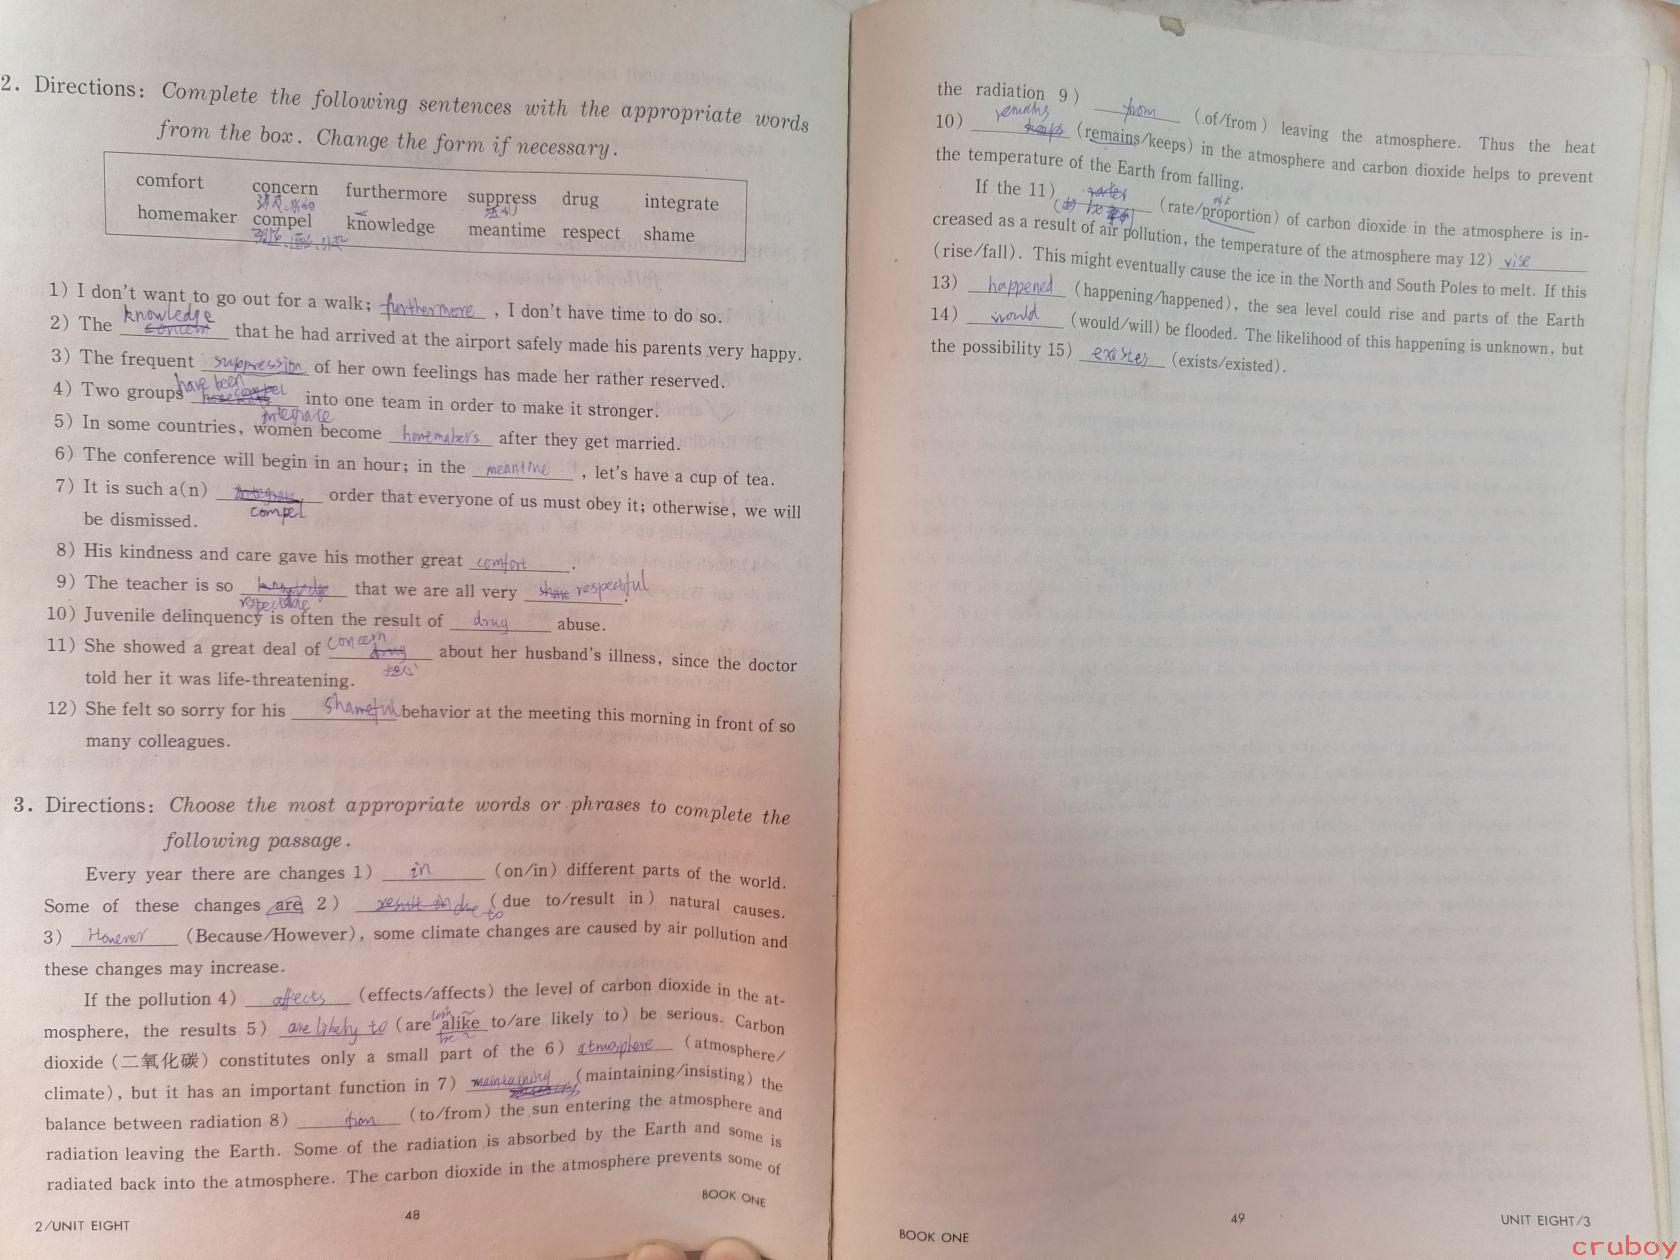 2. Directions: Complete the following sentences with the appropriate words
from the box. Change the form if necessary.
comfort concern furthermore suppress drug integrate
homemaker compel knowledge meantime respect shame
1) I don't want to go out for a walk; furthermore, I don't have time to do so.
knowledge
2) The concern that he had arrived at the airport safely made his parents very happy.
3) The frequent suppression of her own feelings has made her rather reserved.
have been
4) Two groups compel into one team in order to make it stronger.
integrate
5) In some countries, women become homemakers after they get married.
6) The conference will begin in an hour; in the meantime, let's have a cup of tea.
7) It is such a(n) integrate order that everyone of us must obey it; otherwise, we will
compel
be dismissed.
8) His kindness and care gave his mother great comfort.
9) The teacher is so knowledge that we are all very share respectful.
10) Juvenile delinquency is often the result of drug abuse.
concern
11) She showed a great deal of drug about her husband's illness, since the doctor
told her it was life-threatening.
12) She felt so sorry for his shameful behavior at the meeting this morning in front of so
many colleagues.
3. Directions: Choose the most appropriate words or phrases to complete the
following passage.
Every year there are changes 1) in (on/in) different parts of the world.
Some of these changes are 2) result in due to (due to/result in) natural causes.
3) However (Because/However), some climate changes are caused by air pollution and
these changes may increase.
If the pollution 4) affects (effects/affects) the level of carbon dioxide in the at-
mosphere, the results 5) are likely to (are alike to/are likely to) be serious. Carbon
dioxide (二氧化碳) constitutes only a small part of the 6) atmosphere (atmosphere/
climate), but it has an important function in 7) maintaining (maintaining/insisting) the
balance between radiation 8) from (to/from) the sun entering the atmosphere and
radiation leaving the Earth. Some of the radiation is absorbed by the Earth and some is
radiated back into the atmosphere. The carbon dioxide in the atmosphere prevents some of
BOOK ONE
2/UNIT EIGHT 48
the radiation 9) from (of/from) leaving the atmosphere. Thus the heat
remains
10) keeps (remains/keeps) in the atmosphere and carbon dioxide helps to prevent
the temperature of the Earth from falling.
If the 11) rates (rate/proportion) of carbon dioxide in the atmosphere is in-
creased as a result of air pollution, the temperature of the atmosphere may 12) rise
(rise/fall). This might eventually cause the ice in the North and South Poles to melt. If this
13) happened (happening/happened), the sea level could rise and parts of the Earth
14) would (would/will) be flooded. The likelihood of this happening is unknown, but
the possibility 15) existes (exists/existed).
BOOK ONE 49 UNIT EIGHT/3
cruboy